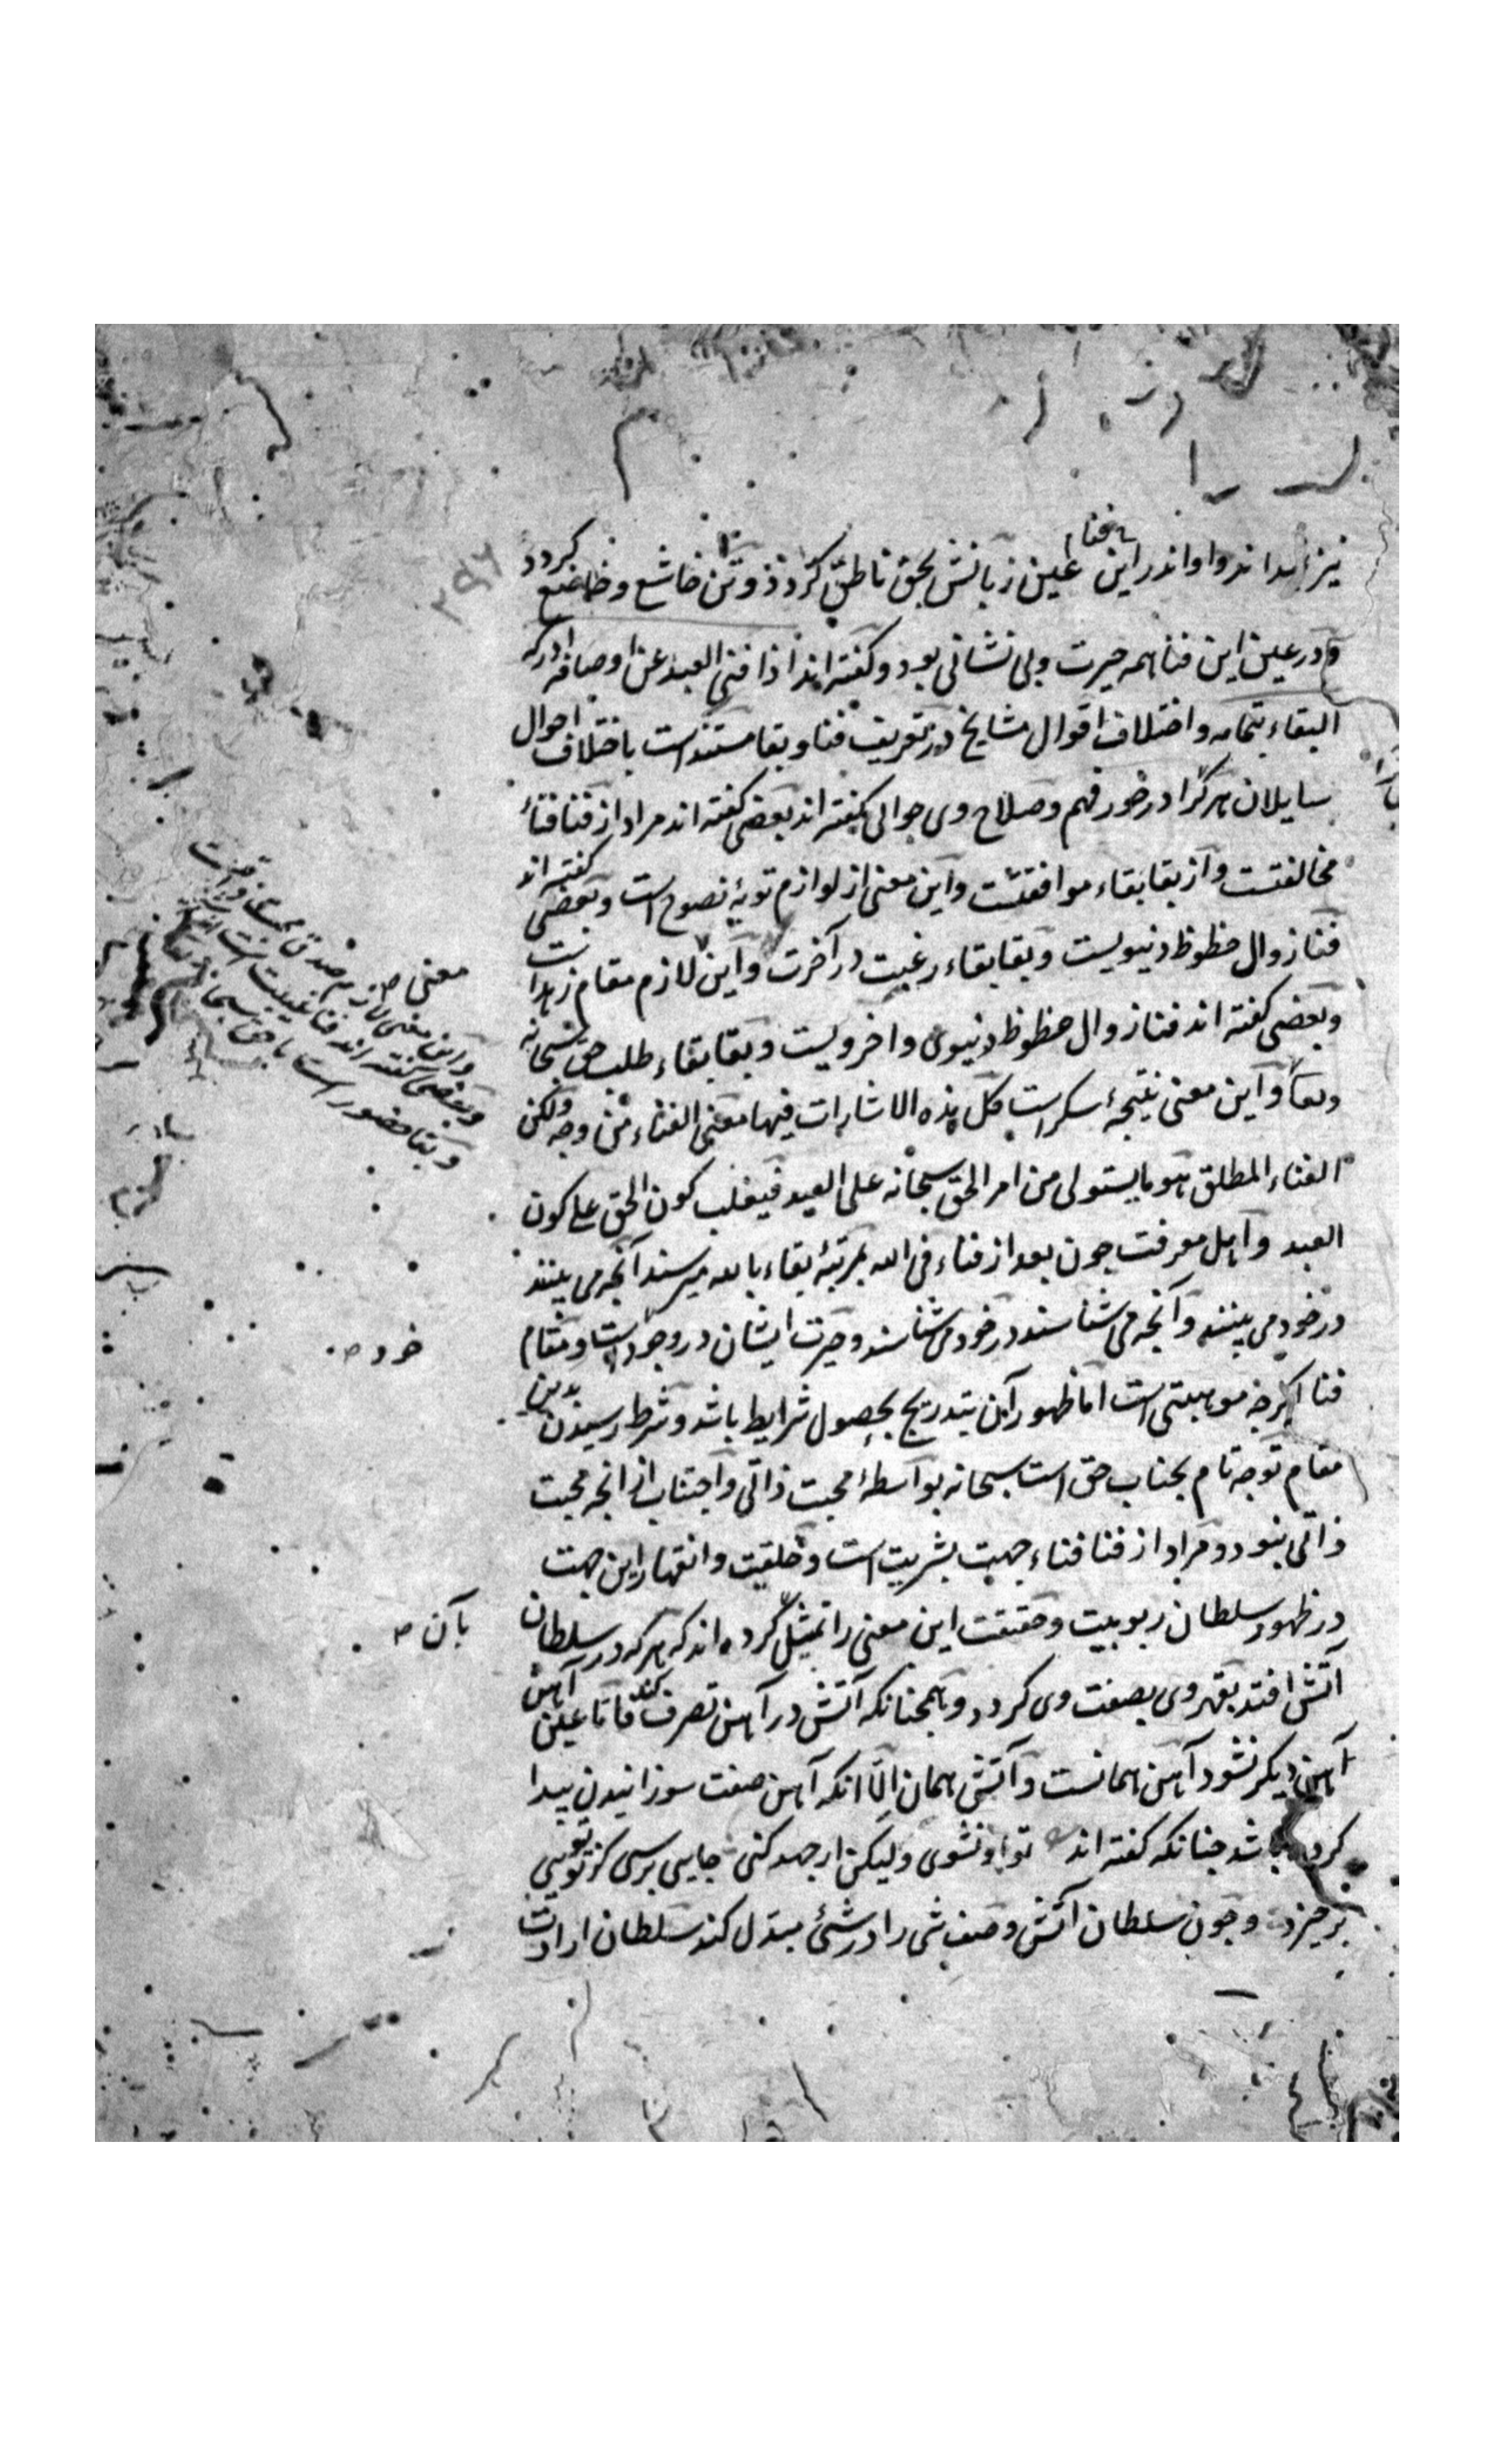 نیز اندر او اندر این فنا عین زبانش بحق ناطق کردد و تن خاشع و خاضع کردد
و در عین این فنا همه حیرت و بی نشانی بود و کفته اند اذا فنی العبد عن اوصافه ادرک
البقاء بتمامه و اختلاف اقوال مشایخ در تعریف فنا و بقا مستند است باختلاف احوال
سایلان هر کرا در خور فهم و صلاح وی جوابی کفته اند بعضی کفته اند مراد از فنا فناء
مخالفتست و از بقا بقاء موافقت و این معنی از لوازم توبهٔ نصوح است و بعضی کفته اند
فنا زوال حظوظ دنیویست و بقا بقاء رغبت در آخرت و این لازم مقام زهد است
و بعضی کفته اند فنا زوال حظوظ دنیوی و اخرویست و بقا بقاء طلب حق سبحانه
و بقا و این معنی نتیجهٔ سکر است فکل هذه الاشارات فیها معنی الفناء من وجه ولکن
الفناء المطلق هو ما یستولی من امر الحق سبحانه علی العبد فیغلب کون الحق علی کون
العبد و اهل معرفت جون بعد از فناء فی الله بمرتبهٔ بقاء بالله میرسند آنجه می بینند
در خود می بینند و آنجه می شناسند در خود می شناسند و حیرت ایشان در وجود است و مقام
فنا اکرجه موهبتی است اما ظهور آن بتدریج بحصول شرایط باشد و شرط رسیدن بدین
مقام توجه تام بجناب حق است سبحانه بواسطهٔ محبت ذاتی و اجتناب از انجه محبت
ذاتی نبود و مراد از فنا فناء جهت بشریت است و خلقیت و انقهار این جهت
در ظهور سلطان ربوبیت و حقیقت این معنی را تمثیل کرده اند که هر که در سلطان
آتش افتد بقهر وی بصفت وی کردد و همجنانکه آتش در آهن تصرف کند فاما عین آهن
آهن دیکر نشود آهن همانست و آتش همان الا انکه آهن صفت سوزانیدن پیدا
کرده باشد جنانکه کفته اند تو او نشوی ولیکن ار جهد کنی جایی برسی کز تو تویی
برخیزد و جون سلطان آتش وصف شی را در شئ مبدل کند سلطان ارادت
معنی
و این معنی لازم صدق محبت
و بعضی کفته اند فنا غیبت است
و بقا حضور است با حق سبحانه
خرد
بآن